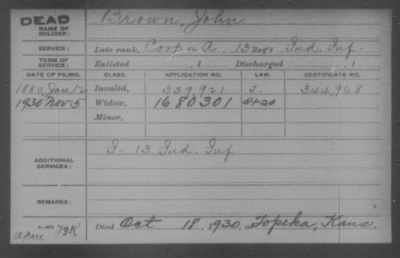 DEAD
NAME OF SOLDIER:
Brown, John
SERVICE:
Late rank, Corp Co A, 13 Reg't Ind. Inf.
TERM OF SERVICE:
Enlisted , 1 Discharged , 1
DATE OF FILING. CLASS. APPLICATION NO. LAW. CERTIFICATE NO.
1880, Jan. 12 Invalid, 339,921 J. 344,968
1930 Nov 5 Widow, 1680301
Minor,
ADDITIONAL SERVICES:
I - 13 Ind. Inf
REMARKS:
Died Oct 18, 1930, Topeka, Kans